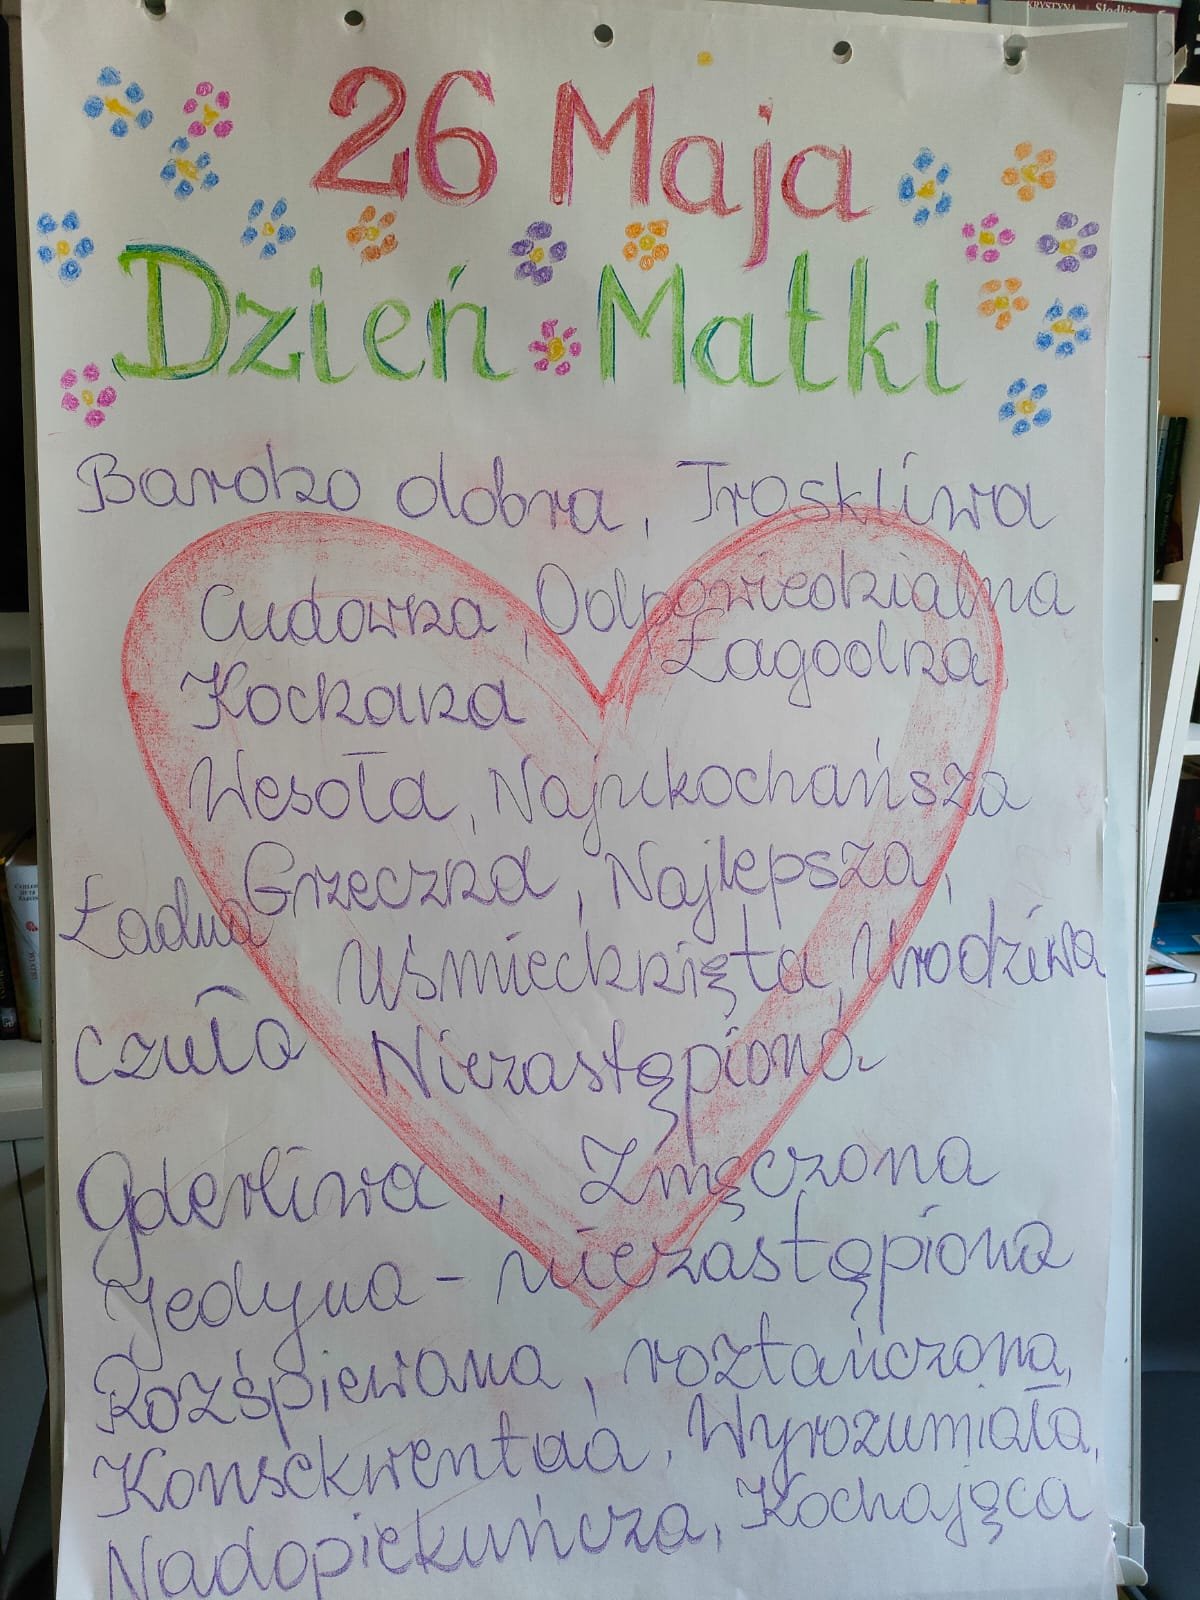 KRYSTYNA
Słodkie
26 Maja
Dzień Matki
Bardzo dobra, Troskliwa
Cudowna, Odpowiedzialna
Kochana Łagodna
Wesoła, Najukochańsza
Grzeczna, Najlepsza,
Ładna Uśmiechnięta, Urodziwa
Czuła Niezastąpiona
Gderliwa, Zmęczona
Jedyna - niezastąpiona
Rozśpiewana, roztańczona,
Konsekwentna, Wyrozumiała,
Nadopiekuńcza, Kochająca